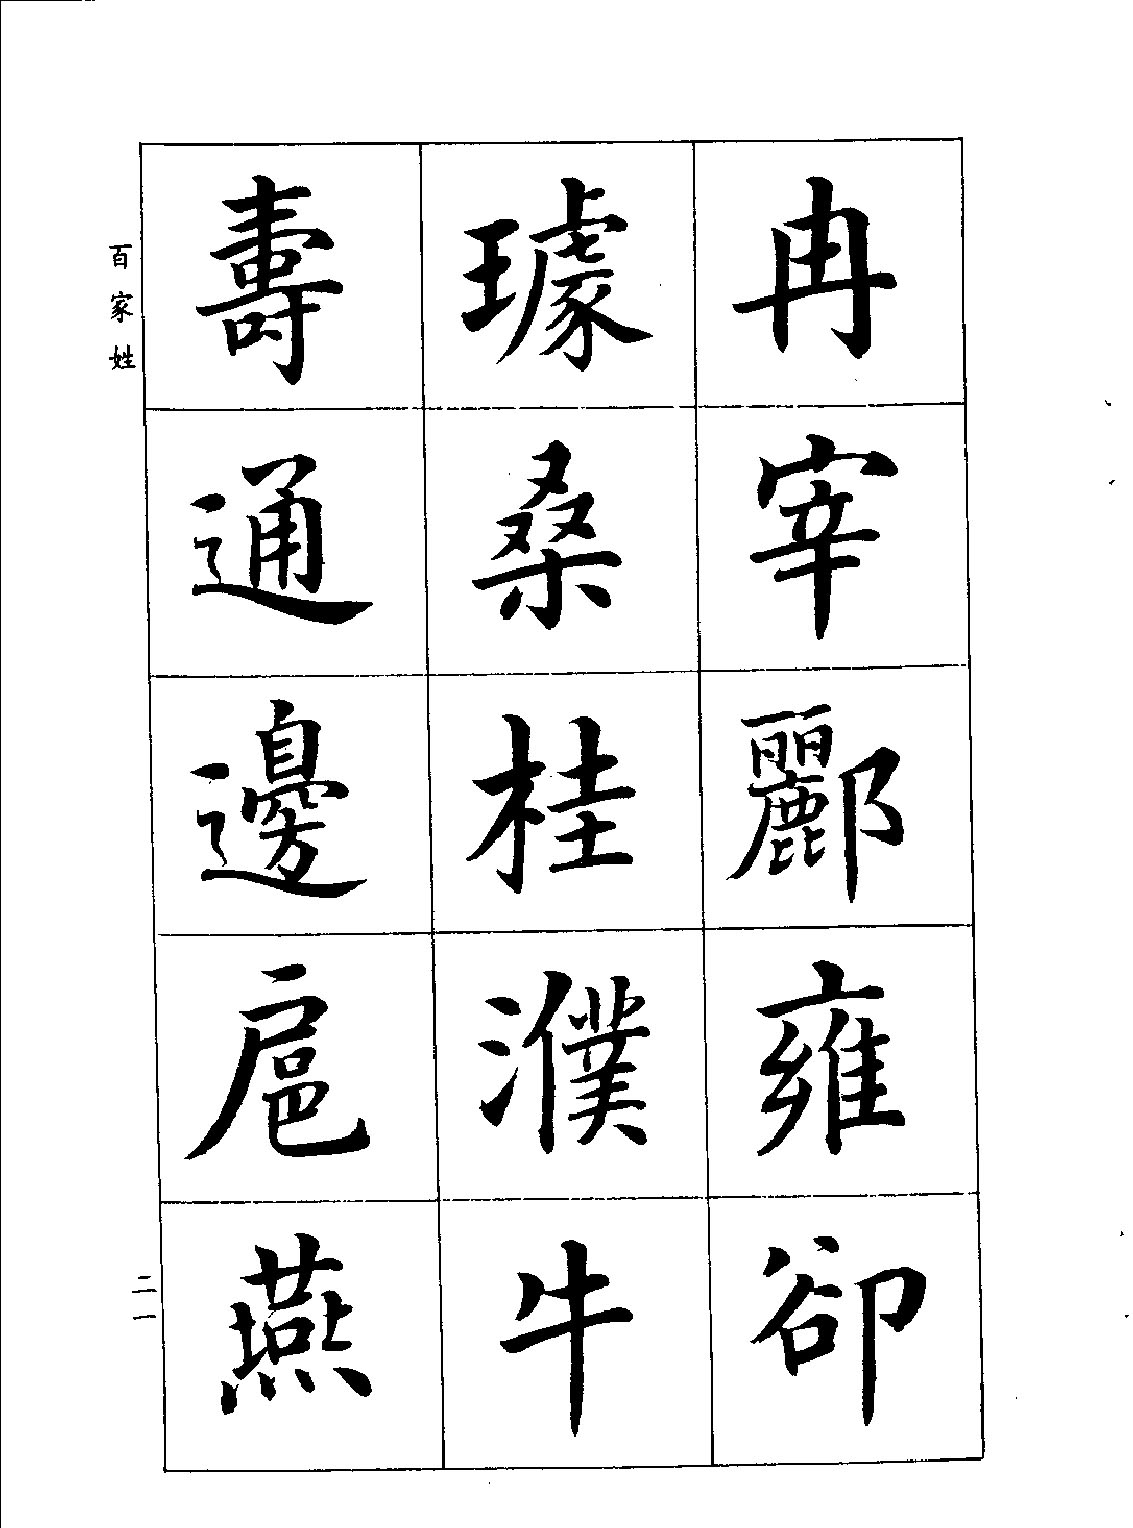 冉宰酈雍卻
璩桑桂濮牛
壽通邊扈燕
百家姓
二一